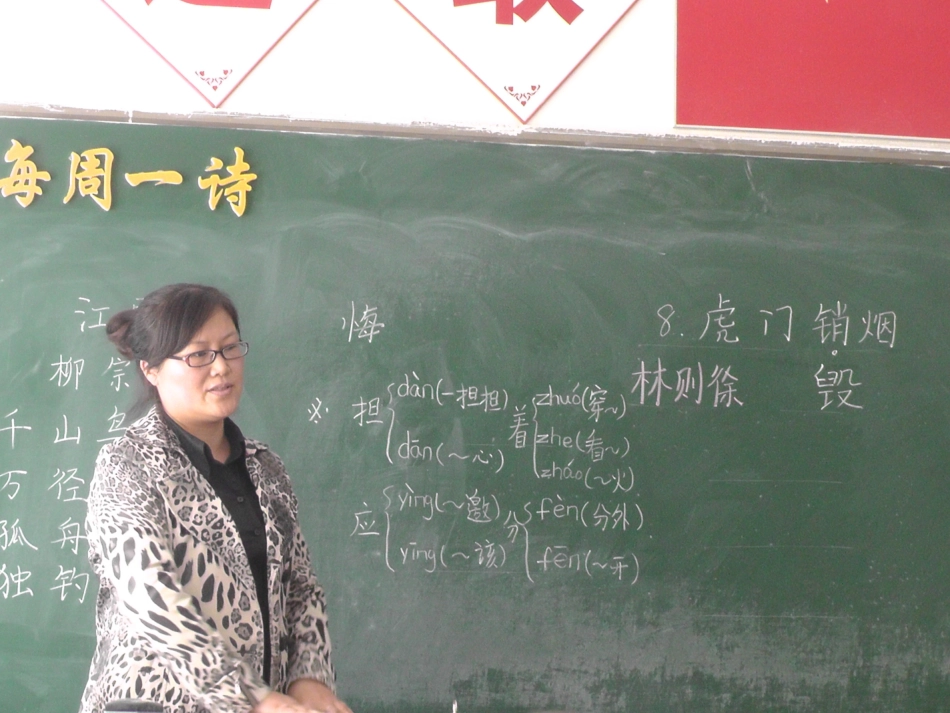 每周一诗
江
柳宗
千山鸟
万径
孤舟
独钓
悔
※ 担 dàn(一担担)
dān(～心)
着 zhuó(穿～)
zhe(看～)
zháo(～火)
应 yìng(～邀)
yīng(～该)
分 fèn(分外)
fēn(～开)
8.虎门销烟
林则徐 毁